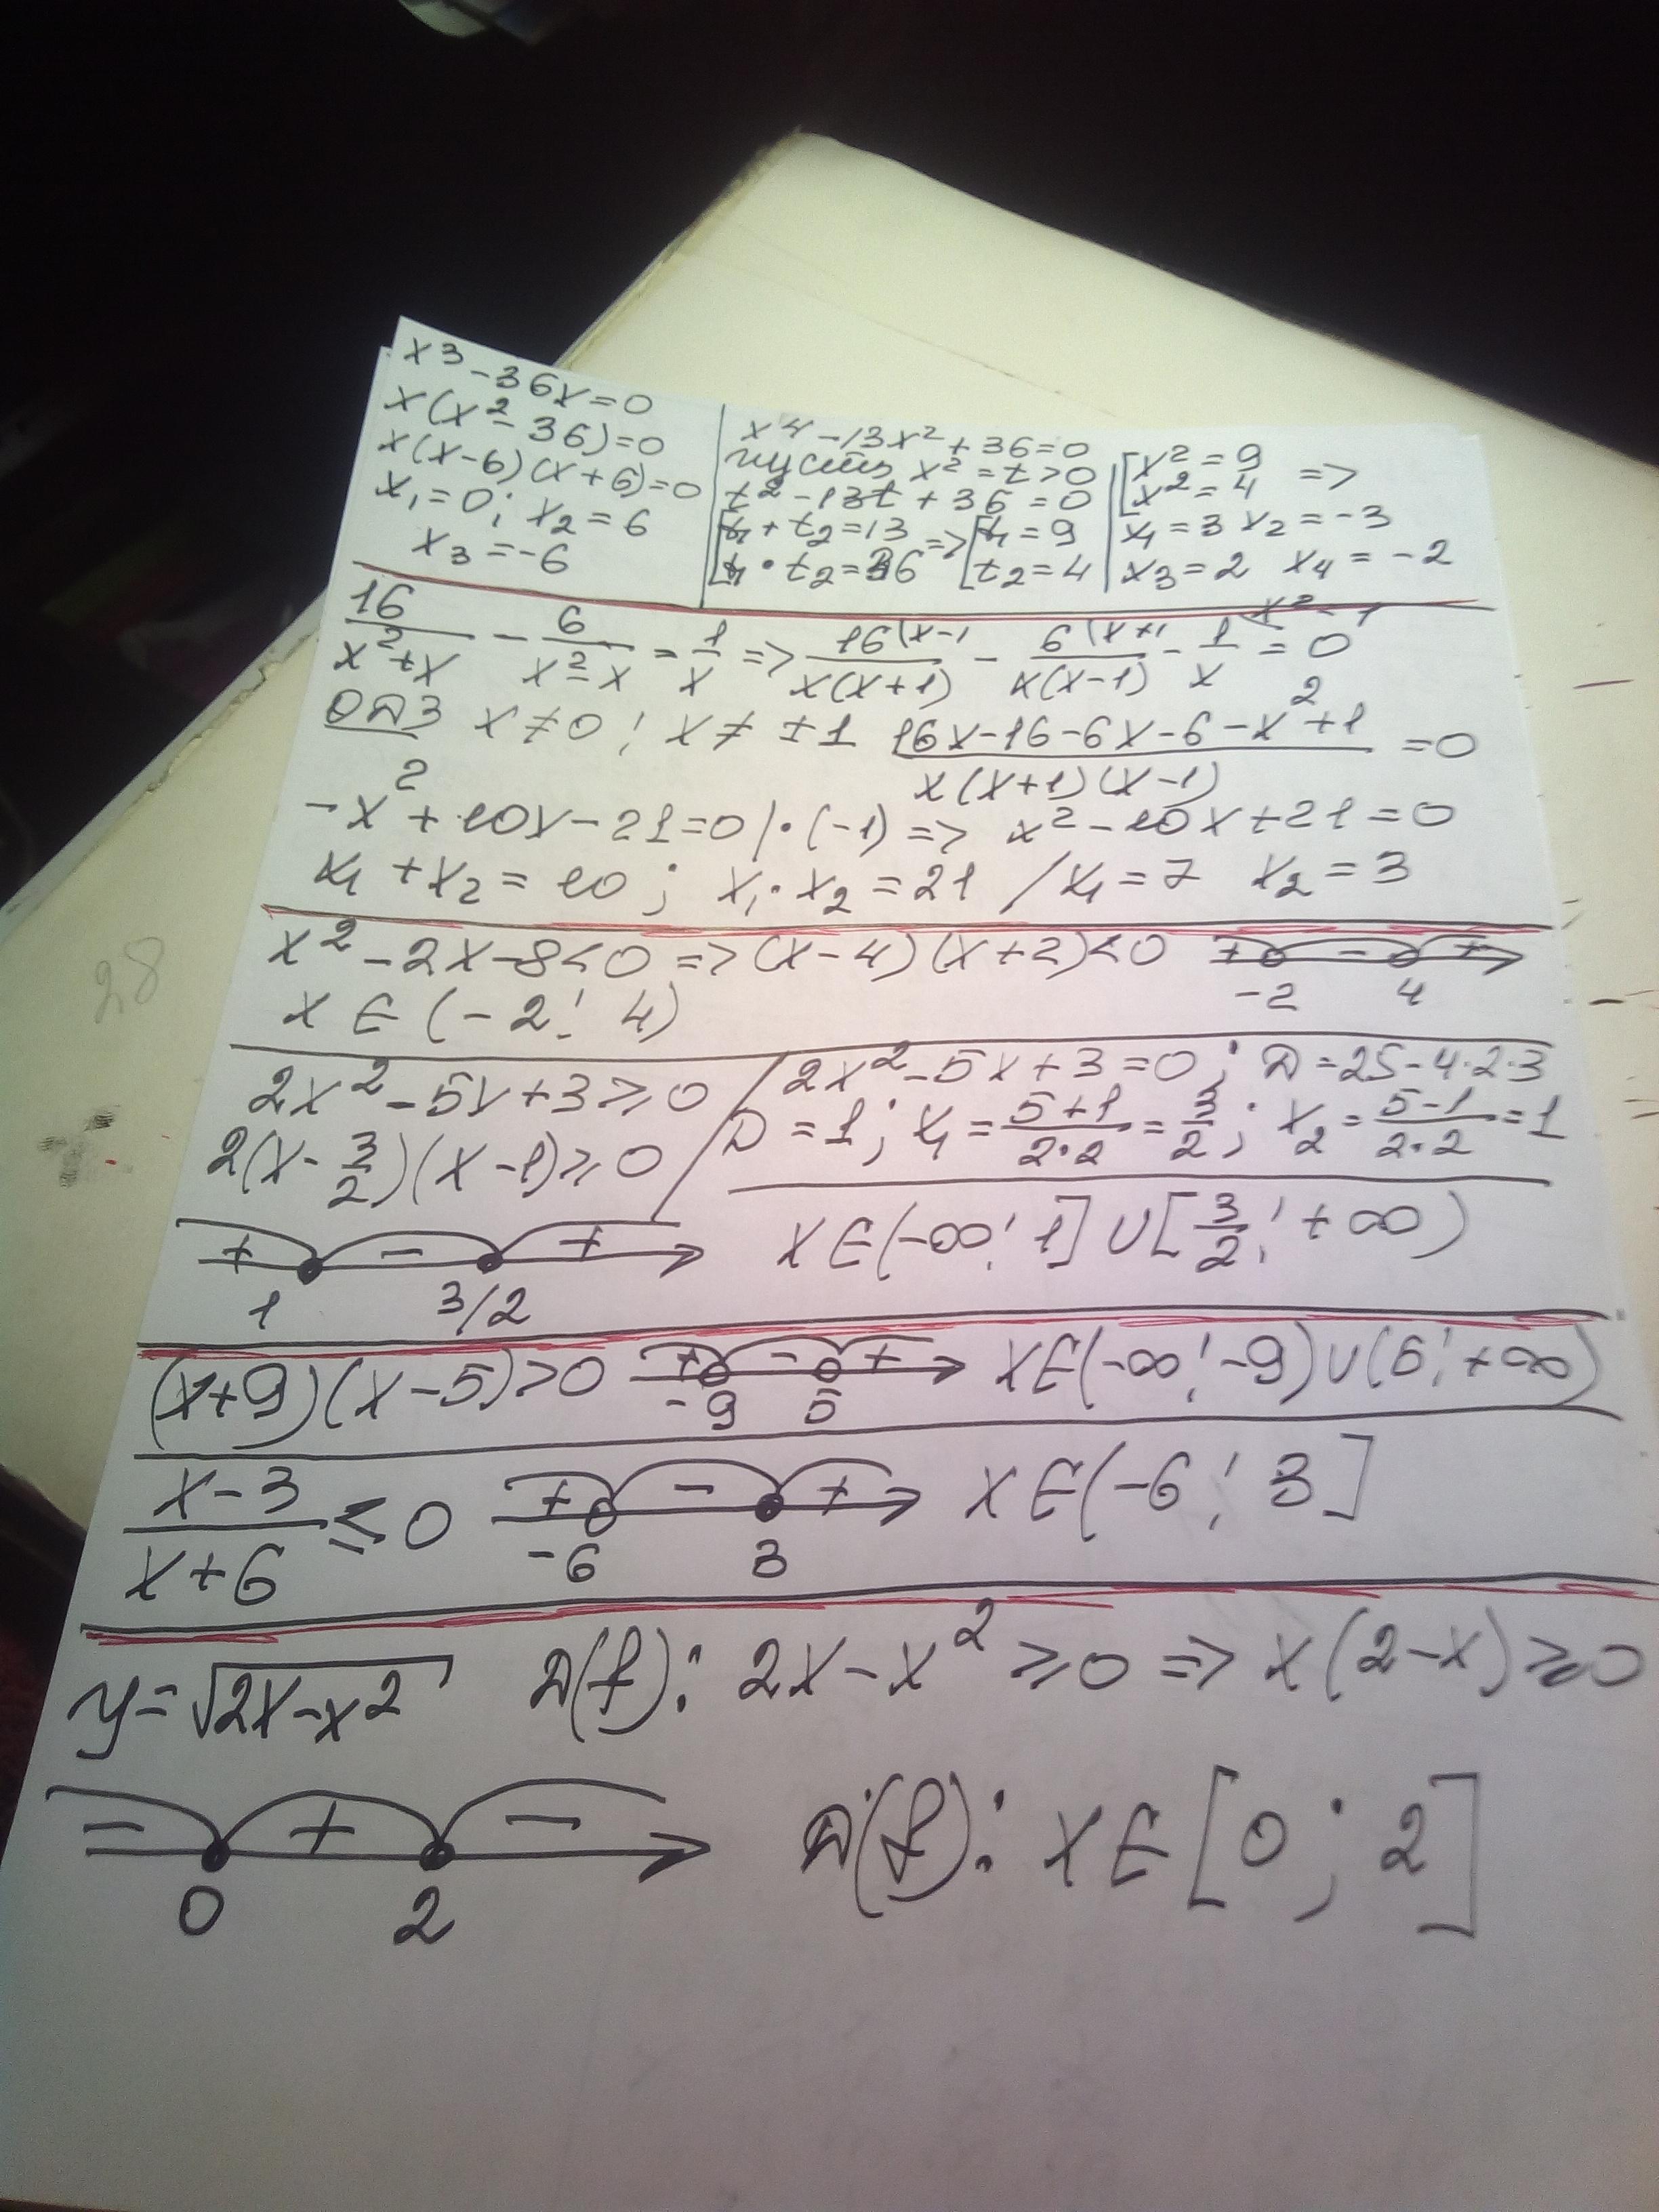 x³-36x=0
x(x²-36)=0
x(x-6)(x+6)=0
x₁=0; x₂=6
x₃=-6
x⁴-13x²+36=0
пусть x²=t>0
t²-13t+36=0
[t₁+t₂=13 => [t₁=9
[t₁·t₂=36 [t₂=4
[x²=9 =>
[x²=4
x₁=3 x₂=-3
x₃=2 x₄=-2
16/(x²+x) - 6/(x²-x) = 1/x => 16(x-1/x(x+1) - 6(x+1/x(x-1) - 1/x (x²-1 = 0
ОДЗ x≠0; x≠±1 (16x-16-6x-6-x²+1)/(x(x+1)(x-1)) =0
-x²+10x-21=0 |·(-1) => x²-10x+21=0
x₁+x₂=10; x₁·x₂=21 / x₁=7 x₂=3
x²-2x-8<0 => (x-4)(x+2)<0 + - +
-2 4
x∈(-2; 4)
2x²-5x+3≥0
2(x-3/2)(x-1)≥0
+ - +
1 3/2
2x²-5x+3=0; D=25-4·2·3
D=1; x₁=(5+1)/(2·2)=3/2; x₂=(5-1)/(2·2)=1
x∈(-∞; 1]∪[3/2; +∞)
(x+9)(x-5)>0 + - + x∈(-∞; -9)∪(5; +∞)
-9 5
(x-3)/(x+6) ≤ 0 + - + x∈(-6; 3]
-6 3
y=√(2x-x²) D(f): 2x-x²≥0 => x(2-x)≥0
- + - D(f): x∈[0; 2]
0 2
28